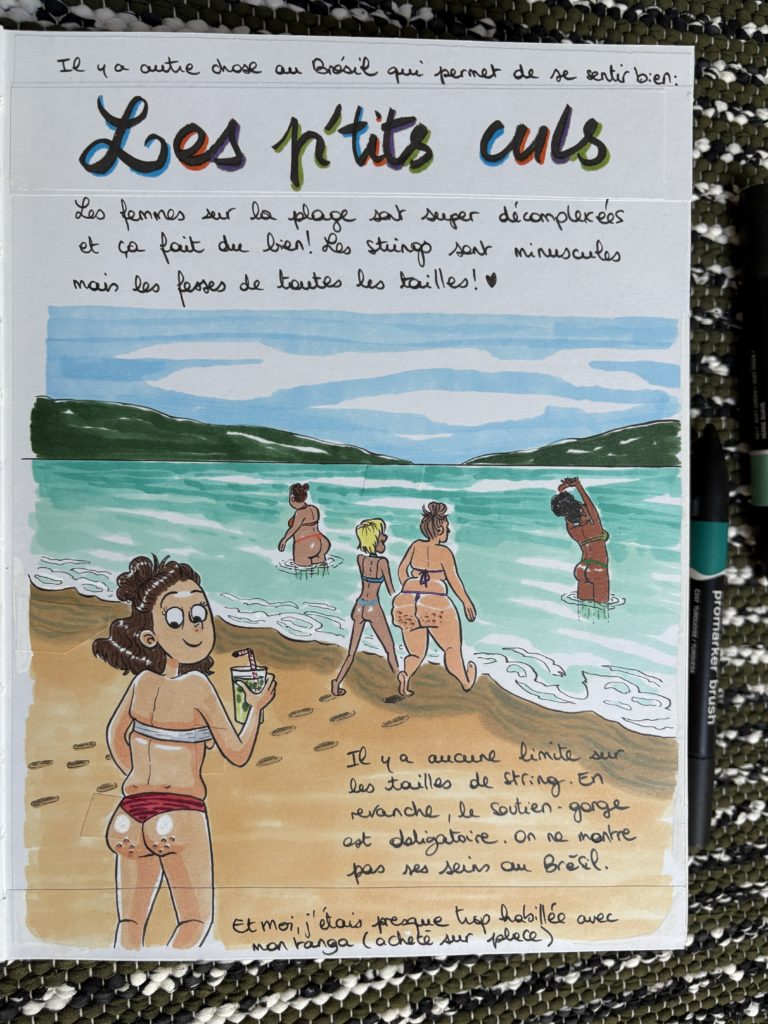 Il y a autre chose au Brésil qui permet de se sentir bien:
Les p'tits culs
Les femmes sur la plage sont super décomplexées
et ça fait du bien! Les strings sont minuscules
mais les fesses de toutes les tailles! ♥
Il y a aucune limite sur
les tailles de string. En
revanche, le soutien-gorge
est obligatoire. On ne montre
pas ses seins au Brésil.
Et moi, j'étais presque trop habillée avec
mon tanga (acheté sur place)
promarker brush